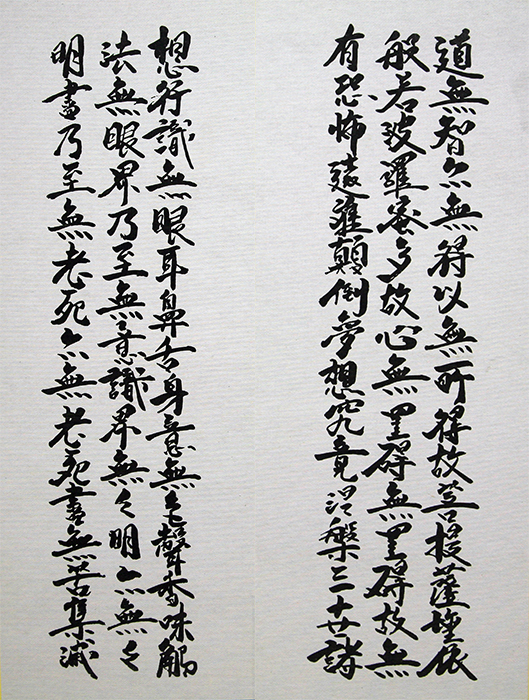 想行識無眼耳鼻舌身意無色聲香味觸
法無眼界乃至無意識界無々明亦無々
明盡乃至無老死亦無老死盡無苦集滅
道無智亦無得以無所得故菩提薩埵依
般若波羅蜜多故心無罣礙無罣礙故無
有恐怖遠離顛倒夢想究竟涅槃三世諸